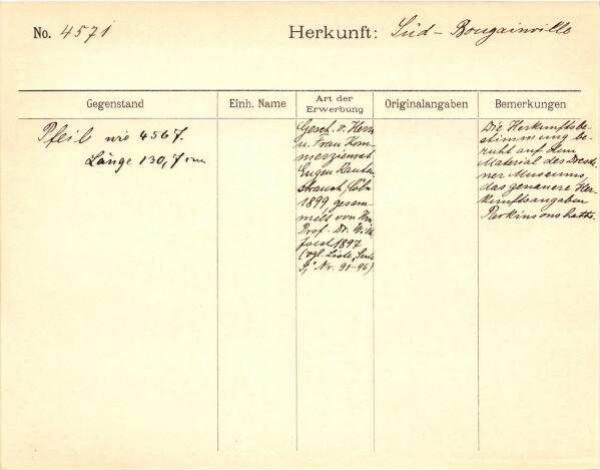 No. 4571
Herkunft: Süd-Bougainville
Gegenstand
Einh. Name
Art der Erwerbung
Originalangaben
Bemerkungen
Pfeil wie 4567.
Länge 130,7 cm
Gesch. v. Herrn
u. Frau Kom-
merzienrat
Eugen Rauten-
strauch, Cöln
1899 gesam-
melt von Hn
Prof. Dr. W.
1897
(vgl. Liste, Seite
9, Nr. 91-96)
Die Herkunftsbe-
stimmung be-
ruht auf dem
Material des Dresd-
ner Museums,
das genauere Her-
kunftsangaben
Parkinsons hatte.